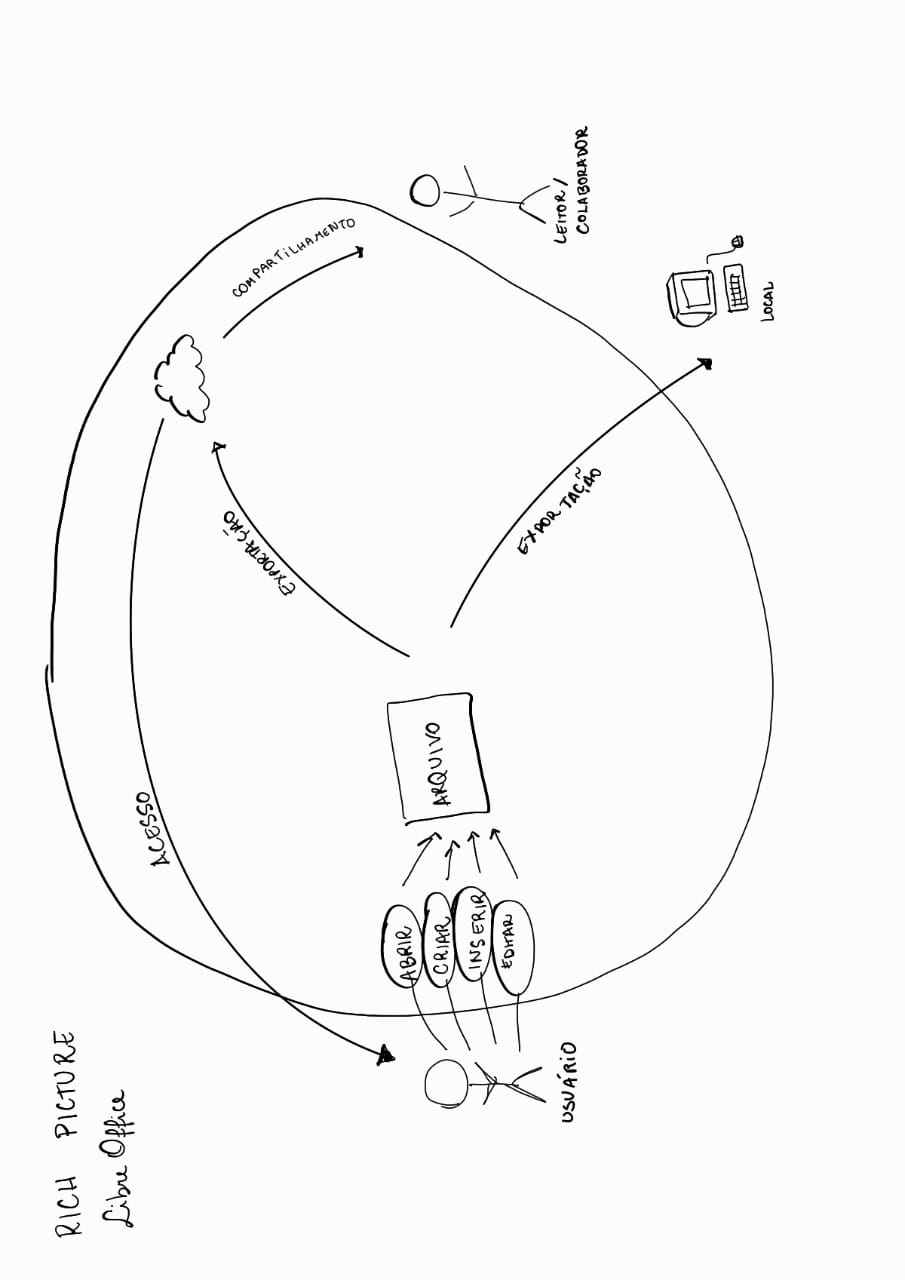 RICH PICTURE
Libre Office
ACESSO
EXPORTAÇÃO
COMPARTILHAMENTO
ABRIR
CRIAR
INSERIR
EDITAR
ARQUIVO
USUÁRIO
EXPORTAÇÃO
LEITOR/
COLABORADOR
LOCAL